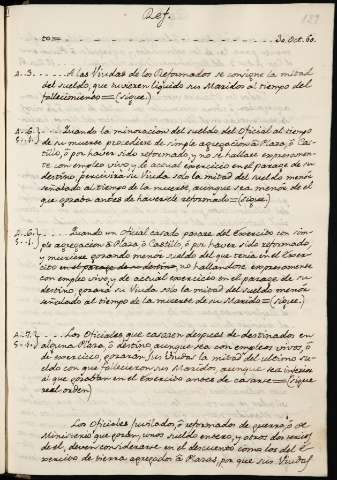 Ref.
129
to = 30. Oct. 60.
A. 3. A las Viudas de los Reformados se consigne la mitad
del sueldo, que tuvieren líquido sus Maridos al tiempo del
fallecimiento = (sigue.)
A. 6. Quando la minoracion del sueldo del Oficial al tiempo
de su muerte procediere de simple agregacion à Plaza, ò Cas-
tillo, ò por haver sido reformado, y no se hallare expresamen-
te con empleo vivo, y de actual exercicio en el parage de su
destino, percivirà su Viuda solo la mitad del sueldo menor
señalado al tiempo de la muerte, aunque sea menor de el
que gozaba antes de haversele reformado = (sigue.)
A. 6. Quando un oficial casado pasare del Exercito con sim-
ple agregacion à Plaza, ò Castillo, ò por haver sido reformado,
y muriere gozando menor sueldo del que tenia en el Exer-
cito en el parage de su destino, no hallandose expresamente
con empleo vivo, y de actual exercicio en el parage de su
destino, gozarà su Viuda solo la mitad del sueldo menor
señalado al tiempo de la muerte de su Marido = (sigue.)
A. 7. Los Oficiales que casasen despues de destinados en
alguna Plaza, ò destino, aunque sea con empleos vivos, ò
de exercicio, gozaràn sus Viudas la mitad del ultimo su-
eldo con que fallecieron sus Maridos, aunque sea inferior
al que gozaban en el Exercito antes de casarse = (sigue
real orden)
Los Oficiales Jubilados, ò reformados de guerra, ò de
Ministerio que gozan, unos sueldo entero, y otros dos tercios
de el, deven considerarse en el descuento como los del E-
xercito de tierra agregados à Plazas, por que sus Viudas